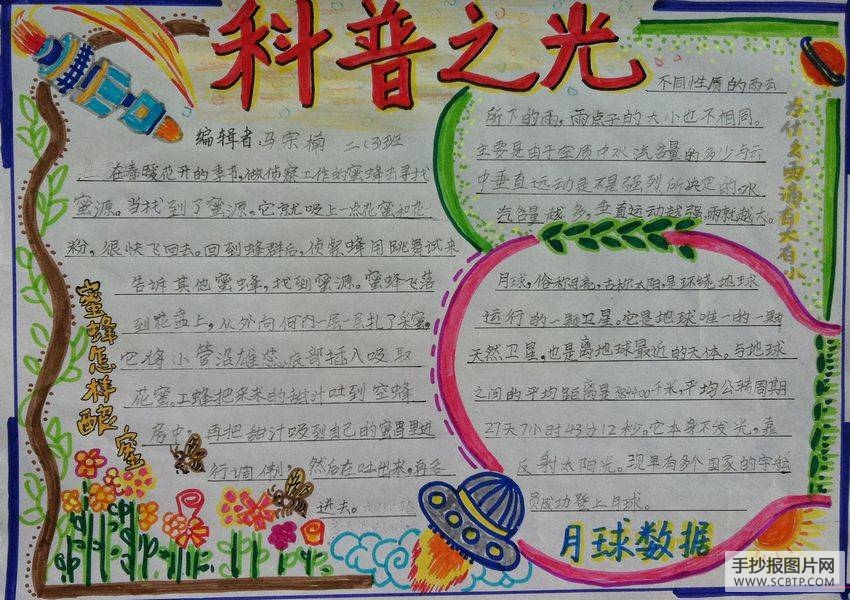 科普之光
编辑者 冯宗楠 二(3)班
蜜蜂怎样酿蜜
在春暖花开的季节,做侦察工作的蜜蜂去寻找
蜜源。当找到了蜜源,它就吸上一点花蜜和花
粉,很快飞回去。回到蜂群后,侦察蜂用跳舞试来
告诉其他蜜蜂,找到蜜源。蜜蜂飞落
到花盖上,从外向何内一层一层扎了采蜜,
它将小管沿雄蕊底部插入吸取
花蜜。工蜂把采来的甜汁吐到空蜂
房中,再把甜汁吸到自己的蜜胃里进
行调制,然后在吐出来,再吞
进去。
为什么雨滴有大有小
不同性质的雨云
所下的雨,雨点子的大小也不相同。
主要是由于空质中水汽含量的多少与云
中垂直运动是不是强烈所决定的水
汽含量越多,垂直运动越强雨就越大。
月球,俗称月亮,古称太阳,是环绕地球
运行的一颗卫星。它是地球唯一的一颗
天然卫星,也是离地球最近的天体。与地球
之间的平均距离是384400千米,平均公转周期
27天7小时43分12秒。它本身不发光,靠
反射太阳光。现早有多个国家的宇航
员成功登上月球。
月球数据
手抄报图片网
WWW.SCBTP.COM